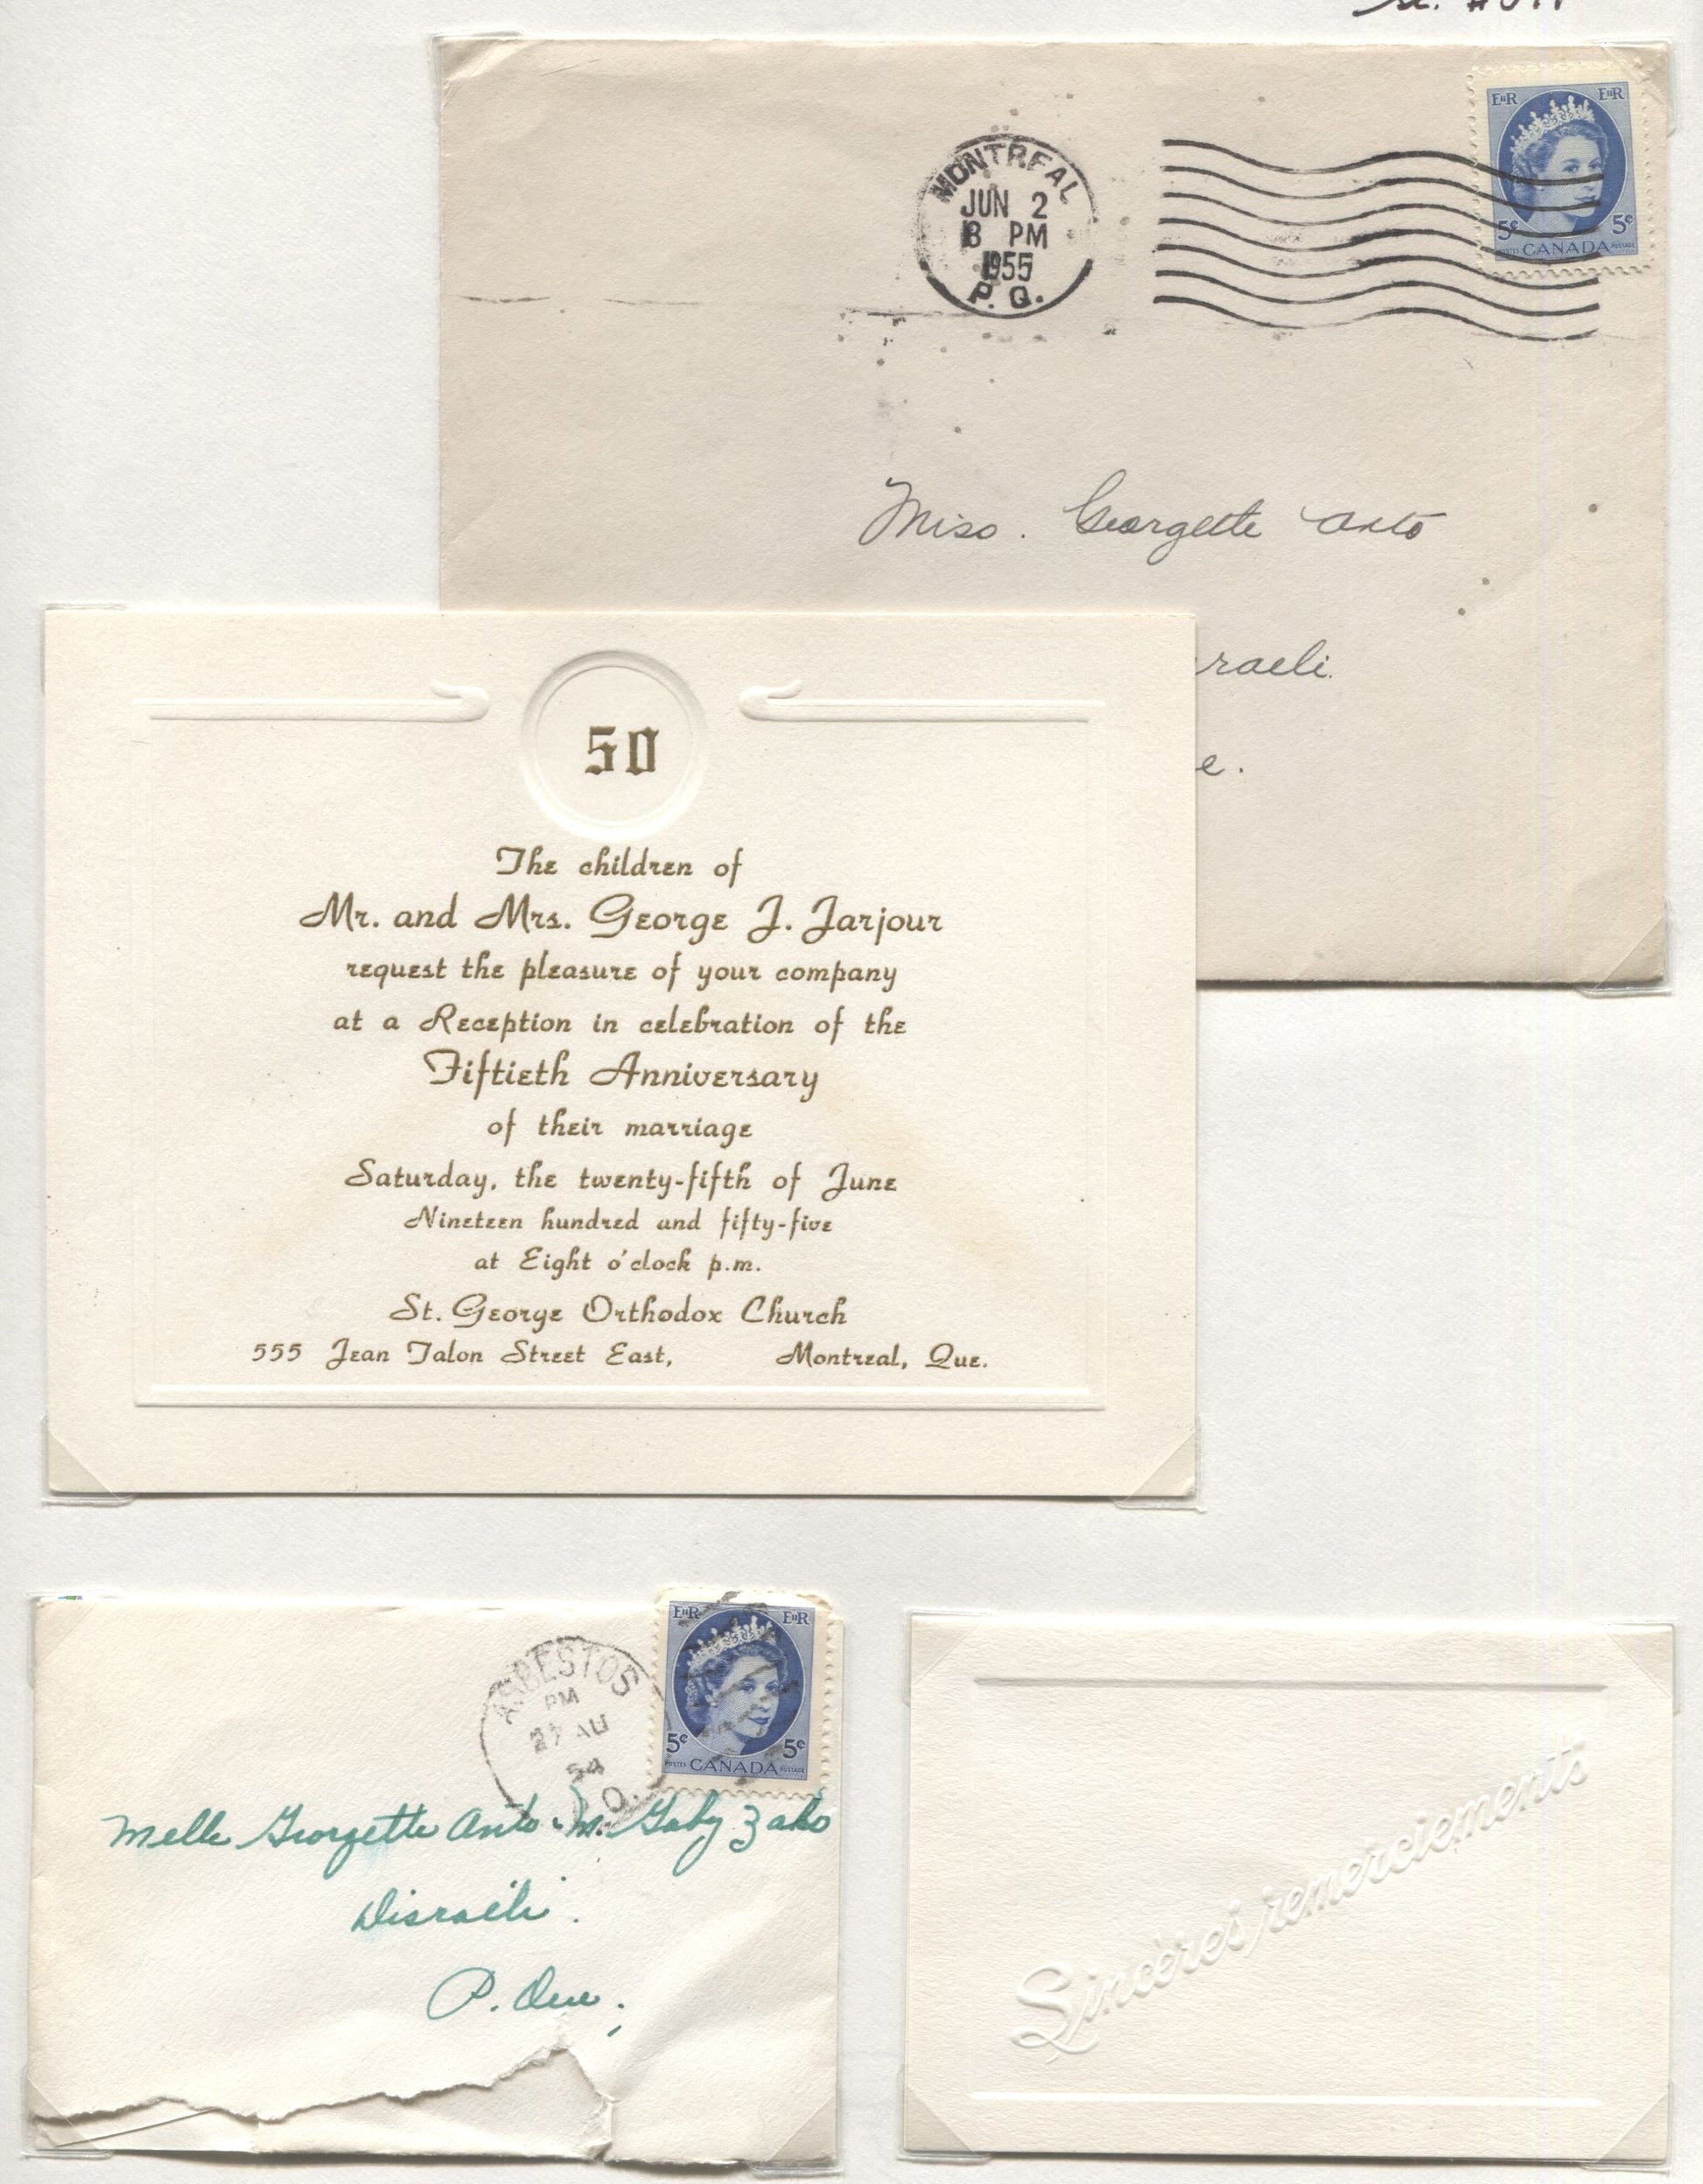 MONTREAL
JUN 2
8 PM
1955
P. Q.
EIIR EIIR
5¢ 5¢
POSTES CANADA POSTAGE
Miss. Georgette Anto
raeli.
e.
50
The children of
Mr. and Mrs. George J. Jarjour
request the pleasure of your company
at a Reception in celebration of the
Fiftieth Anniversary
of their marriage
Saturday, the twenty-fifth of June
Nineteen hundred and fifty-five
at Eight o'clock p.m.
St. George Orthodox Church
555 Jean Talon Street East, Montreal, Que.
ASBESTOS
PM
27 AU
54
Q.
EIIR EIIR
5¢ 5¢
POSTES CANADA POSTAGE
Melle Georgette Anto M. Gaby Zako
Disraeli.
P. Que.
Sincères remerciements